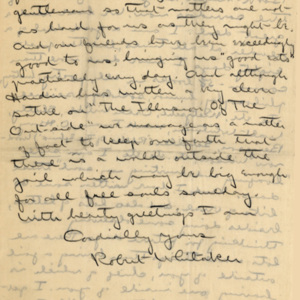 gentlemen so that matters are not
as hard for us as they might be.
And our friends have been exceedingly
good to us, bringing us "good eats"
practically every day. And although
Hardin has written a very clever
satire on "The Illusion Of The
Outside" we manage as a matter
of fact to keep our faith that
there is a world outside the
jail which may be big enough
for all free souls someday.
With hearty greetings I am
Cordially yours
Robert Whitaker